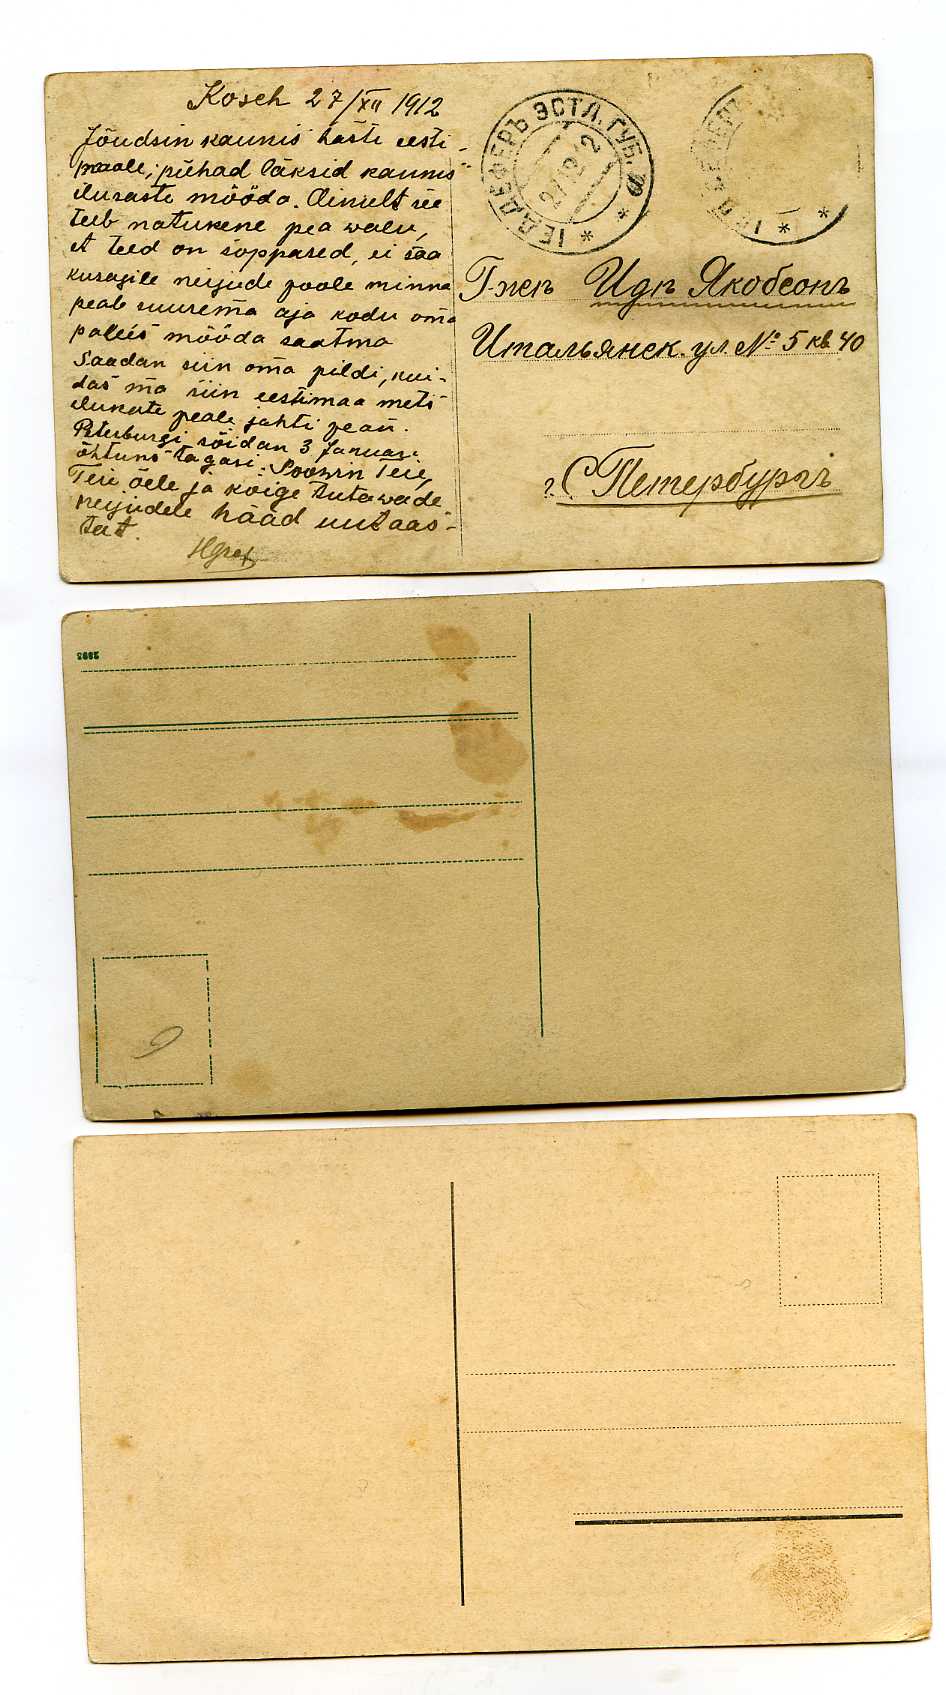 Kosch 27/XII 1912
Jõudsin kaunis hästi eesti-
maale, pühad läksid kaunis
ilusaste mööda. Ainult see
teeb natukene pea walu,
et teed on soppased, ei saa
kusagile neijude poole minna
peab suurema aja kodu oma
paleis mööda saatma
Saadan siin oma pildi, kui-
das ma siin eestimaa mets
ilukate peale jahti pean.
Peterburgi sõidan 3 Januari
õhtuns tagasi. Soowin Teie,
Teie õele ja kõige tutawade
neijudele hääd uutaas-
tat.
ІЕДДЕФЕРЪ ЭСТЛ. ГУБ.
27 12 12
Г-жѣ Идѣ Якобсонъ
Итальянск. ул. № 5 кв 40
г. С Петербургъ
2893